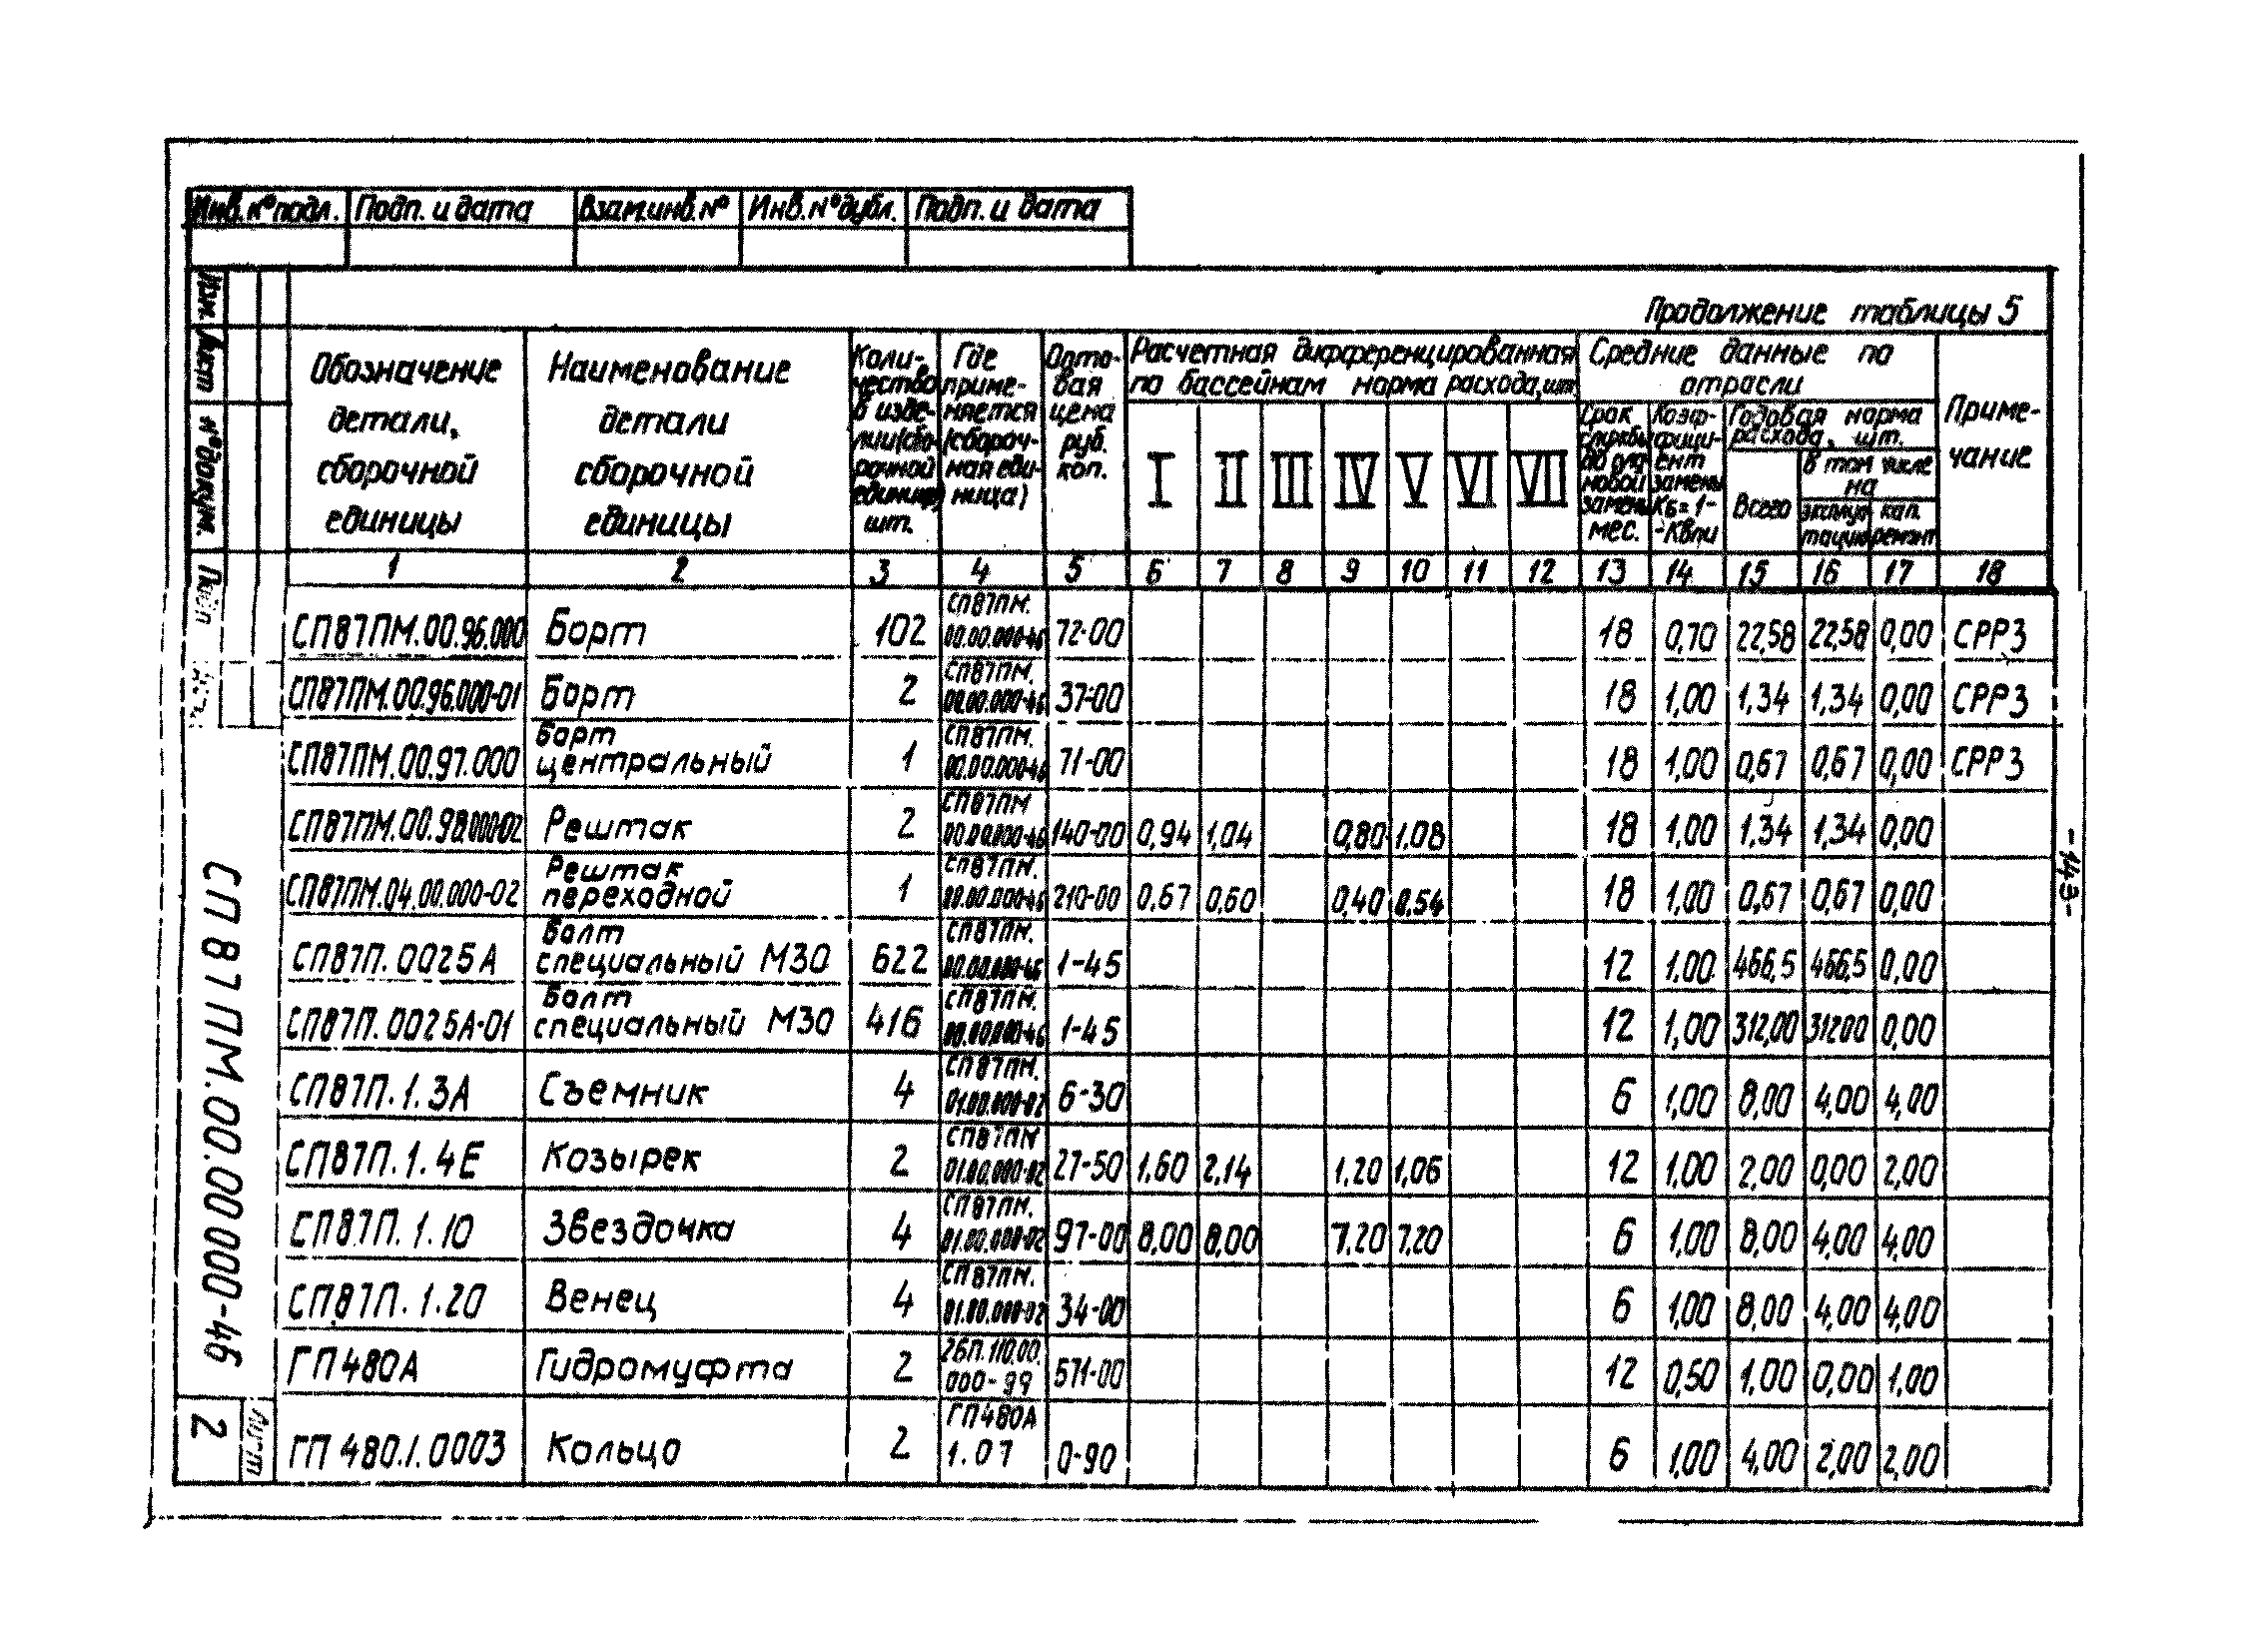 Инв. № подл. Подп. и дата Взам.инв.№ Инв.№ дубл. Подп. и дата
Продолжение таблицы 5
Обозначение детали, сборочной единицы
Наименование детали сборочной единицы
Коли-чество в изде-лии (сбо-рочной единице) шт.
Где приме-няется (сбороч-ная еди-ница)
Опто-вая цена руб. коп.
Расчетная дифференцированная по бассейнам норма расхода, шт.
I II III IV V VI VII
Средние данные по отрасли
Срок службы до пла-новой замены мес.
Коэф-фици-ент замены Кб=1--Квпи
Годовая норма расхода, шт.
Всего
в том числе на
эксплуа-тацию
кап. ремонт
Приме-чание
1 2 3 4 5 6 7 8 9 10 11 12 13 14 15 16 17 18
СП87ПМ.00.96.000 Борт 102 СП87ПМ. 00.00.000-46 72-00 18 0,70 22,58 22,58 0,00 СРРЗ
СП87ПМ.00.96.000-01 Борт 2 СП87ПМ. 00.00.000-46 37-00 18 1,00 1,34 1,34 0,00 СРРЗ
СП87ПМ.00.97.000 Борт центральный 1 СП87ПМ. 00.00.000-46 71-00 18 1,00 0,67 0,67 0,00 СРРЗ
СП87ПМ.00.98.000-02 Рештак 2 СП87ПМ 00.00.000-46 140-00 0,94 1,04 0,80 1,08 18 1,00 1,34 1,34 0,00
СП87ПМ.04.00.000-02 Рештак переходной 1 СП87ПМ. 00.00.000-46 210-00 0,67 0,60 0,40 0,54 18 1,00 0,67 0,67 0,00
СП87П.0025А Болт специальный М30 622 СП87ПМ. 00.00.000-46 1-45 12 1,00 466,5 466,5 0,00
СП87П.0025А-01 Болт специальный М30 416 СП87ПМ. 00.00.000-46 1-45 12 1,00 312,00 312,00 0,00
СП87П.1.3А Съемник 4 СП87ПМ. 01.00.000-02 6-30 6 1,00 8,00 4,00 4,00
СП87П.1.4Е Козырек 2 СП87ПМ 01.00.000-02 27-50 1,60 2,14 1,20 1,06 12 1,00 2,00 0,00 2,00
СП87П.1.10 Звездочка 4 СП87ПМ. 01.00.000-02 97-00 8,00 8,00 7,20 7,20 6 1,00 8,00 4,00 4,00
СП87П.1.20 Венец 4 СП87ПМ. 01.00.000-02 34-00 6 1,00 8,00 4,00 4,00
ГП480А Гидромуфта 2 26П.110.00. 000-99 571-00 12 0,50 1,00 0,00 1,00
ГП 480.1.0003 Кольцо 2 ГП480А 1.07 0-90 6 1,00 4,00 2,00 2,00
-43-
Изм. Лист № докум. Подп
СП 87ПМ.00.00000-46
Лист
2